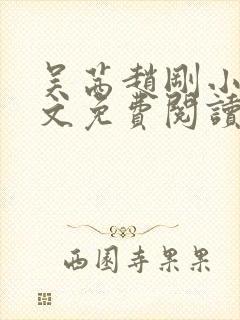 吴茜趙剛小
文免費閱讀
西園寺果果